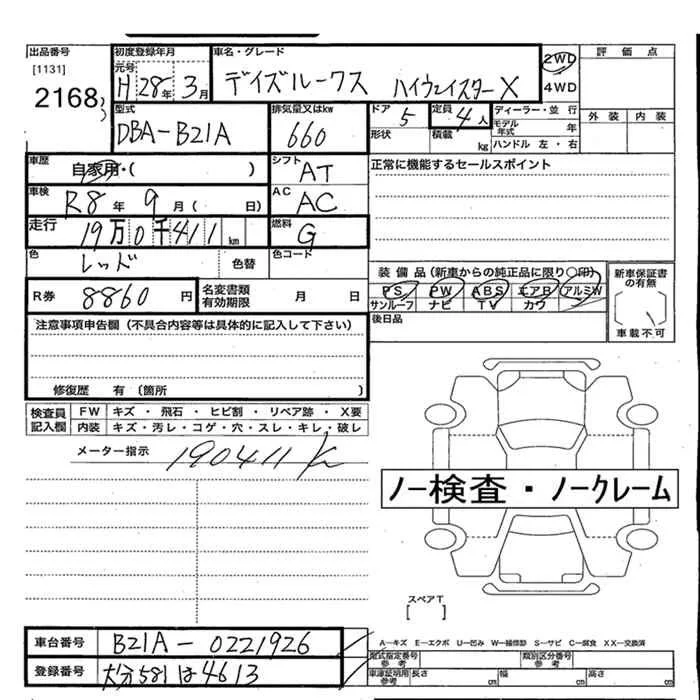 出品番号
[1131]
2168
初度登録年月
元号
H 28年 3月
車名・グレード
デイズルークス ハイウェイスターX
2WD
4WD
評価点
外装 内装
型式
DBA-B21A
排気量又はkw
660
ドア 5
形状
定員 4人
積載 kg
ディーラー・並行
モデル年式 年
ハンドル 左・右
車歴
自家用・( )
シフト
AT
正常に機能するセールスポイント
車検
R8年 9月( 日)
AC
AC
走行
19万0千411km
燃料
G
色
レッド
色替
色コード
装備品(新車からの純正品に限り○印)
PS PW ABS エアB アルミW
サンルーフ ナビ TV カワ
後日品
新車保証書の有無
車載不可
R券 8860円
名変書類有効期限 月 日
注意事項申告欄(不具合内容等は具体的に記入して下さい)
修復歴 有〔箇所 〕
検査員記入欄
FW キズ・飛石・ヒビ割・リペア跡・X要
内装 キズ・汚レ・コゲ・穴・スレ・キレ・破レ
メーター指示 190411K
ノー検査・ノークレーム
スペアT
[ ]
車台番号 B21A-0221926
登録番号 大分581は4613
A―キズ E―エクボ U―凹み W―補修跡 S―サビ C―腐食 XX―交換済
型式指定番号参考
類別区分番号参考
車庫証明用参考
長さ cm 幅 cm 高さ cm